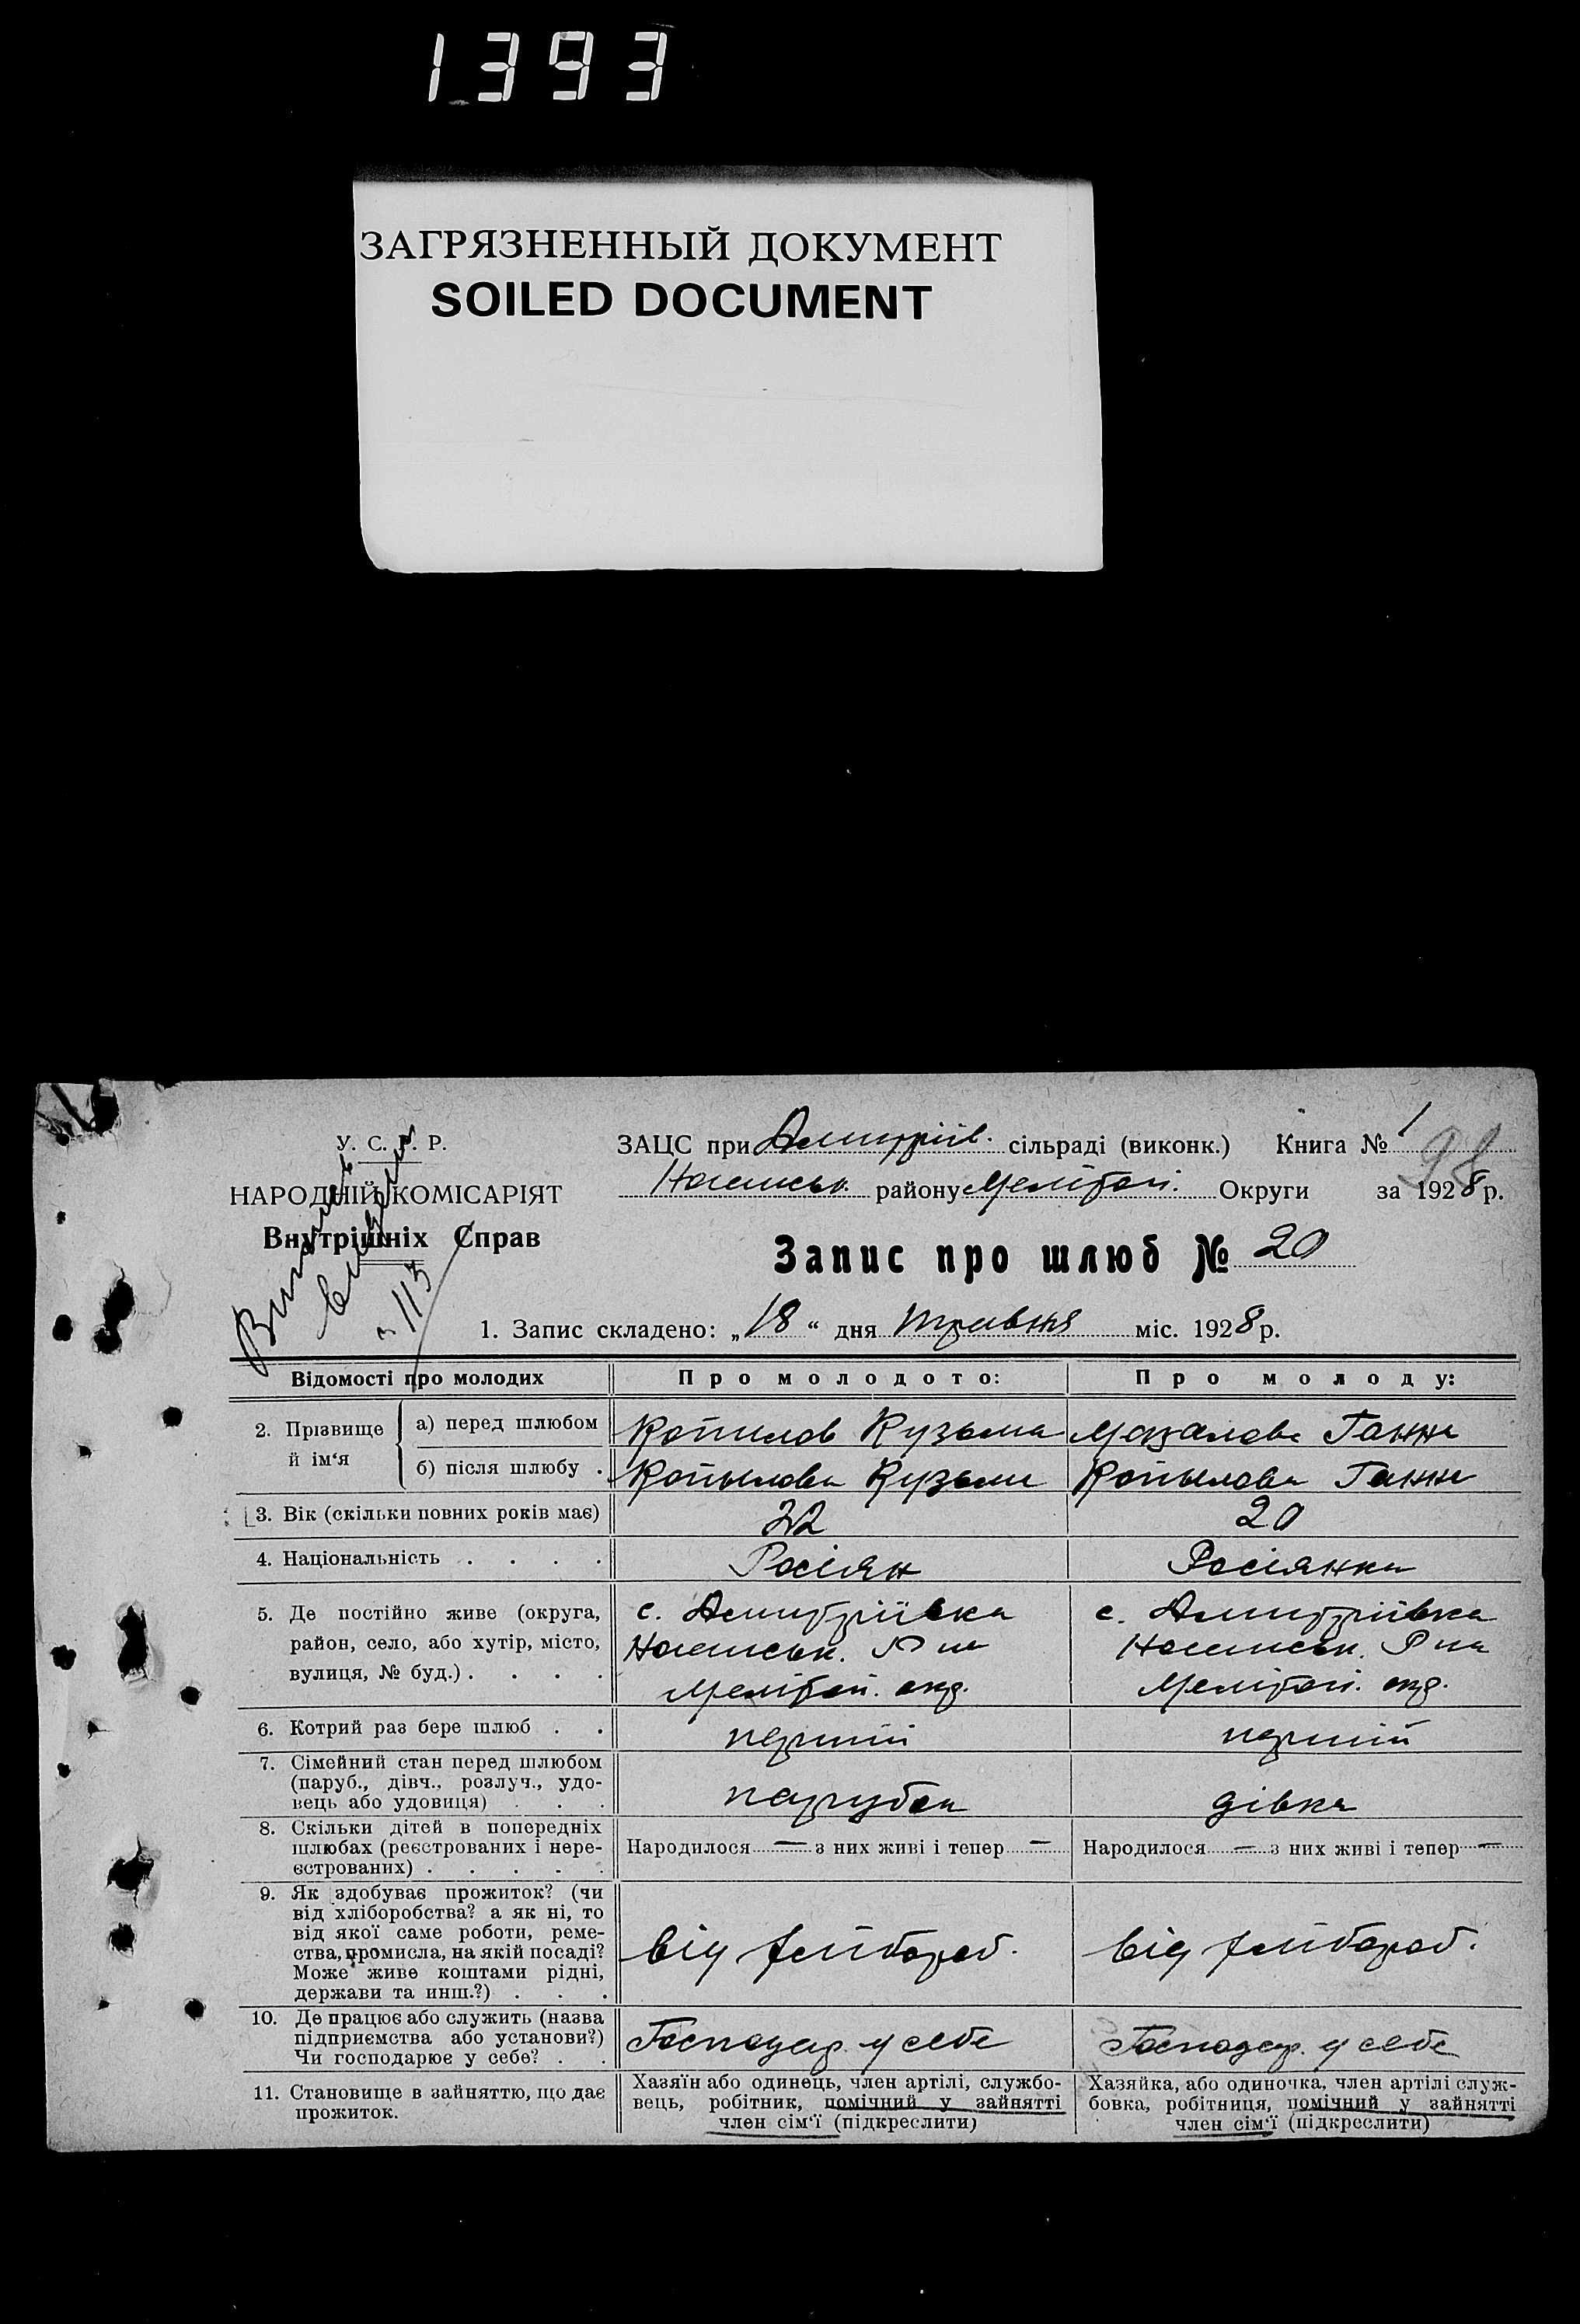 1393
ЗАГРЯЗНЕННЫЙ ДОКУМЕНТ
SOILED DOCUMENT
У. С. Р. Р.
НАРОДНІЙ КОМІСАРІЯТ
Внутрішніх Справ
ЗАЦС при Дмитрїїв. сільраді (виконк.) Книга № 1
району Мелітоп. Округи за 1928 р.
Запис про шлюб № 20
1. Запис складено: „18“ дня травня міс. 1928 р.
Відомості про молодих Про молодого: Про молоду:
2. Прізвище й ім‘я
а) перед шлюбом Копилов Кузьма Ганна
б) після шлюбу . Копылова Ганна
3. Вік (скільки повних років має) 22 20
4. Національність . . . . Росіян Росіянка
5. Де постійно живе (округа, с. Дмитрїївка с. Дмитрїївка
район, село, або хутір, місто, Р на Р на
вулиця, № буд.) . . . . Мелітоп. окр. Мелітоп. окр.
6. Котрий раз бере шлюб . . перший перший
7. Сімейний стан перед шлюбом
(паруб., дівч., розлуч., удо-
вець або удовиця) . . . парубок дівка
8. Скільки дітей в попередніх
шлюбах (реєстрованих і нере-
єстрованих) . . . . . Народилося — з них живі і тепер — Народилося — з них живі і тепер —
9. Як здобуває прожиток? (чи
від хліборобства? а як ні, то
від якої саме роботи, реме-
ства, промисла, на якій посаді?
Може живе коштами рідні,
держави та инш.?) . . . від хлібороб. від хлібороб.
10. Де працює або служить (назва
підприємства або установи?)
Чи господарює у себе? . . Господар. у себе Господар. у себе
11. Становище в зайняттю, що дає
прожиток.
Хазяїн або одинець, член артілі, службо-
вець, робітник, помічний у зайнятті
член сім‘ї (підкреслити)
Хазяйка, або одиночка, член артілі служ-
бовка, робітниця, помічний у зайнятті
член сім‘ї (підкреслити)